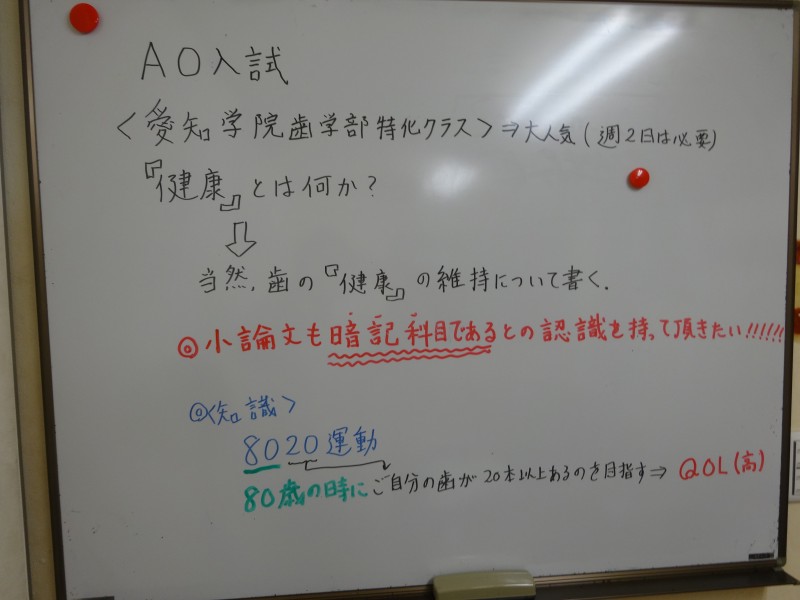 AO入試
〈愛知学院歯学部特化クラス〉⇒大人気(週2日は必要)
『健康』とは何か?
当然,歯の『健康』の維持について書く.
◎小論文も暗記科目であるとの認識を持って頂きたい!!!!!!
◎〈知識〉
8020運動
80歳の時にご自分の歯が20本以上あるのを目指す⇒QOL(高)